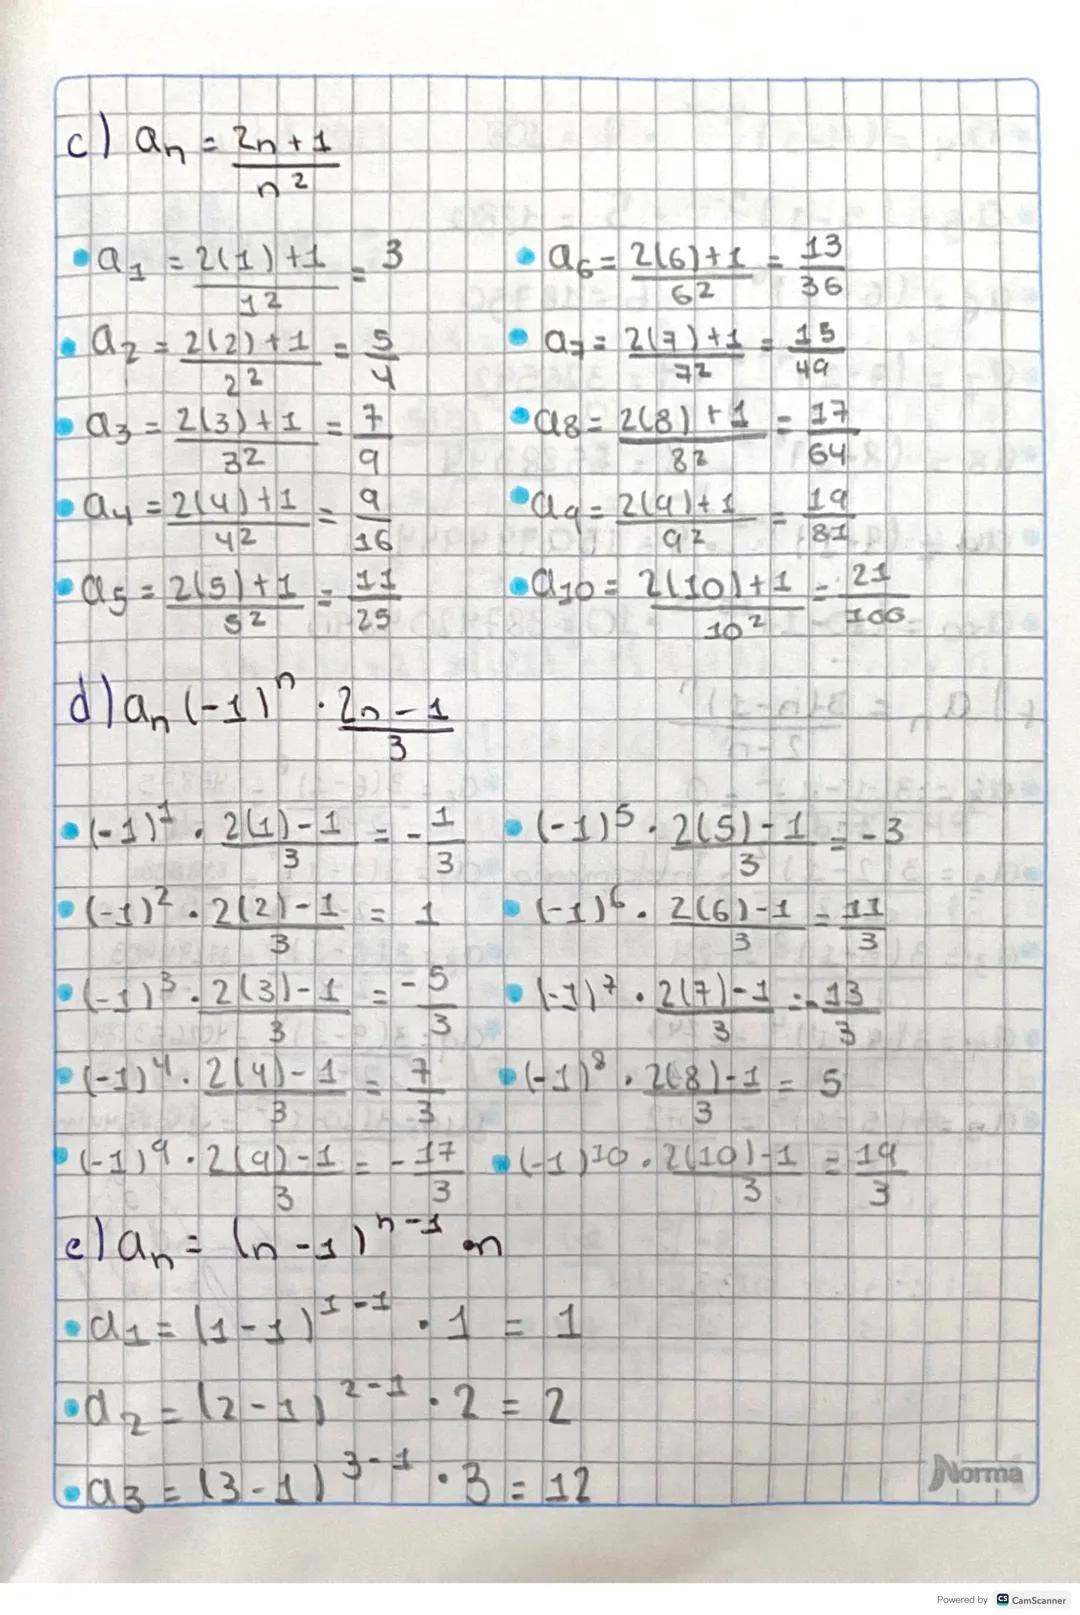 c) aₙ = (2n + 1)/n²
• a₁ = (2(1)+1)/1² = 3
• a₂ = (2(2)+1)/2² = 5/4
• a₃ = (2(3)+1)/3² = 7/9
• a₄ = (2(4)+1)/4² = 9/16
• a₅ = (2(5)+1)/5² = 11/25
• a₆ = (2(6)+1)/6² = 13/36
• a₇ = (2(7)+1)/7² = 15/49
• a₈ = (2(8)+1)/8² = 17/64
• a₉ = (2(9)+1)/9² = 19/81
• a₁₀ = (2(10)+1)/10² = 21/100
d) aₙ (-1)ⁿ · (2n - 1)/3
• (-1)¹ · (2(1)-1)/3 = -1/3
• (-1)⁵ · (2(5)-1)/3 = -3
• (-1)² · (2(2)-1)/3 = 1
• (-1)⁶ · (2(6)-1)/3 = 11/3
• (-1)³ · (2(3)-1)/3 = -5/3
• (-1)⁷ · (2(7)-1)/3 = -13/3
• (-1)⁴ · (2(4)-1)/3 = 7/3
• (-1)⁸ · (2(8)-1)/3 = 5
• (-1)⁹ · (2(9)-1)/3 = -17/3
• (-1)¹⁰ · (2(10)-1)/3 = 19/3
e) aₙ = (n - 1)ⁿ⁻¹ · n
• a₁ = (1-1)¹⁻¹ · 1 = 1
• a₂ = (2-1)²⁻¹ · 2 = 2
• a₃ = (3-1)³⁻¹ · 3 = 12
Norma
Powered by CS CamScanner